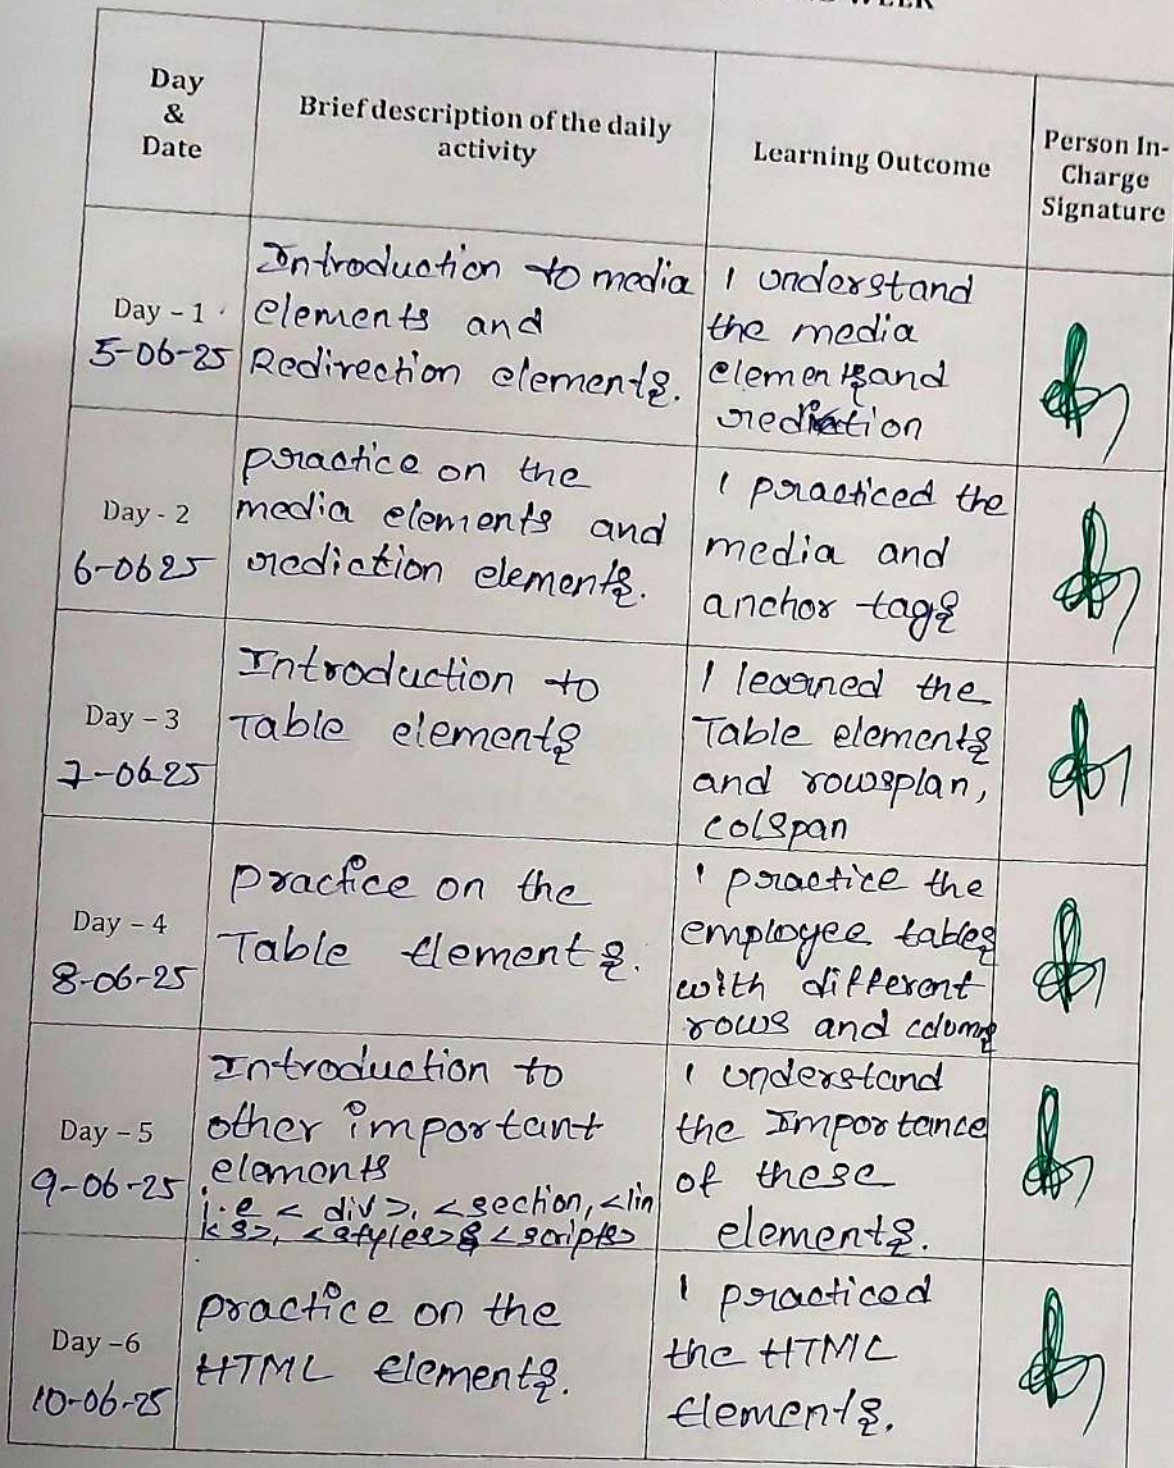 WEEK
Day
&
Date
Brief description of the daily
activity
Learning Outcome
Person In-
Charge
Signature
Day - 1
5-06-25
Introduction to media
elements and
Redirection elements.
I understand
the media
elements and
rediction
Day - 2
6-0625
practice on the
media elements and
rediction elements.
I practiced the
media and
anchor tags
Day - 3
7-0625
Introduction to
Table elements
I learned the
Table elements
and rowsplan,
colspan
Day - 4
8-06-25
practice on the
Table Elements.
I practice the
employee tables
with different
rows and colums
Day - 5
9-06-25
Introduction to
other important
elements
i.e < div >, <section, <lin
ks>, <styles>& <scripts>
I understand
the Importance
of these
elements.
Day -6
10-06-25
practice on the
HTML Elements.
I practiced
the HTML
Elements.